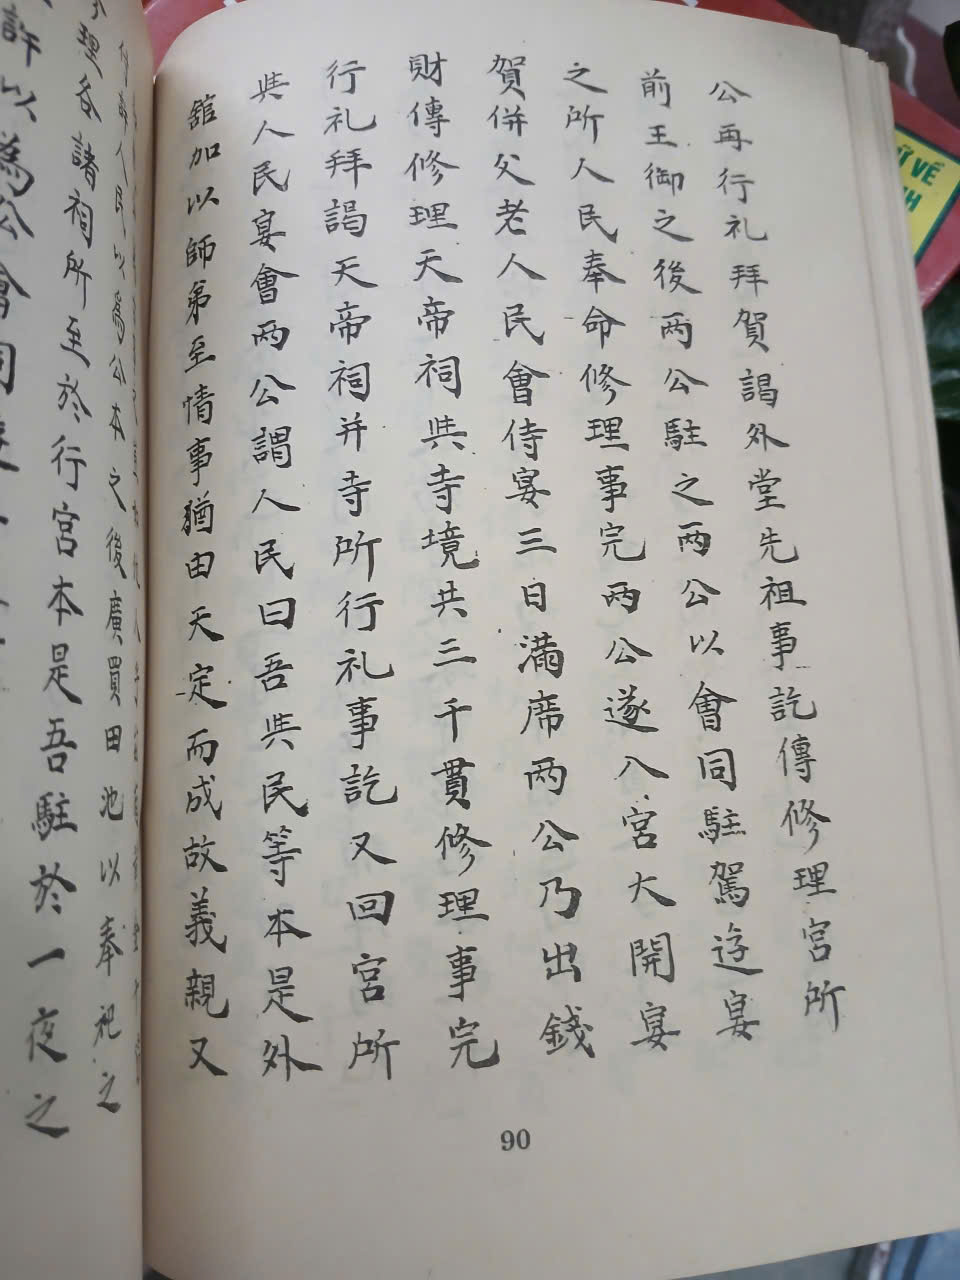 公再行礼拜賀謁外堂先祖事訖傳修理宮所
前王御之後両公駐之両公以會同駐駕逰宴
之所人民奉命修理事完両公遂入宮大開宴
賀併父老人民會侍宴三日滿席両公乃出錢
財傳修理天帝祠與寺境共三千貫修理事完
行礼拜謁天帝祠并寺所行礼事訖又回宮所
與人民宴會両公謂人民曰吾與民等本是外
舘加以師弟至情事猶由天定而成故義親又
90
付許人民以爲公本之後廣買田池以奉祀之
理各諸祠所至於行宮本是吾駐於一夜之
許以爲公會同
ử VỀ
NH